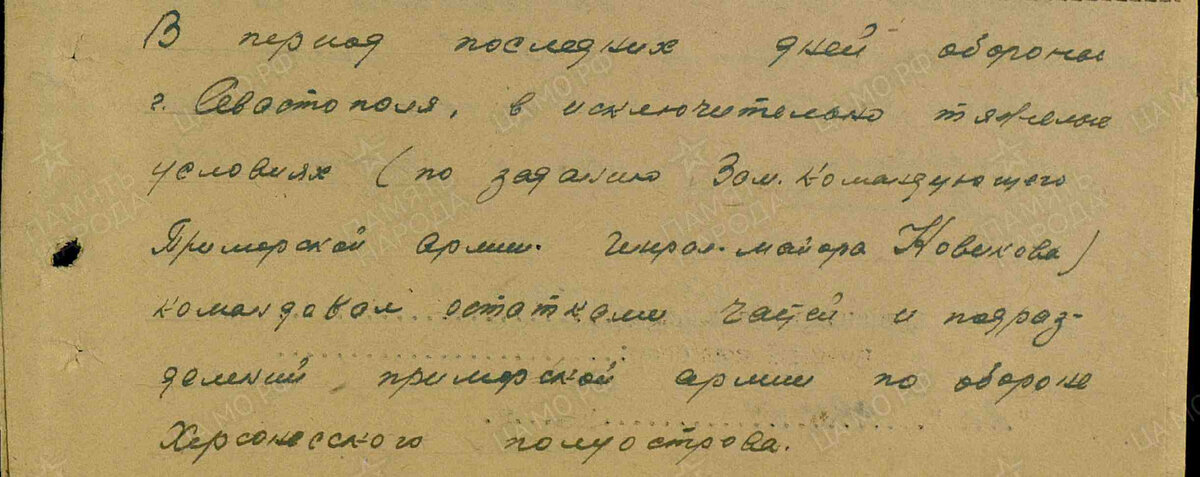 В период последних дней обороны
г. Севастополя, в исключительно тяжелых
условиях (по заданию Зам. командующего
Приморской армии генрал-майора Новикова)
командовал остатками частей и подраз-
делений приморской армии по обороне
Херсонесского полуострова.